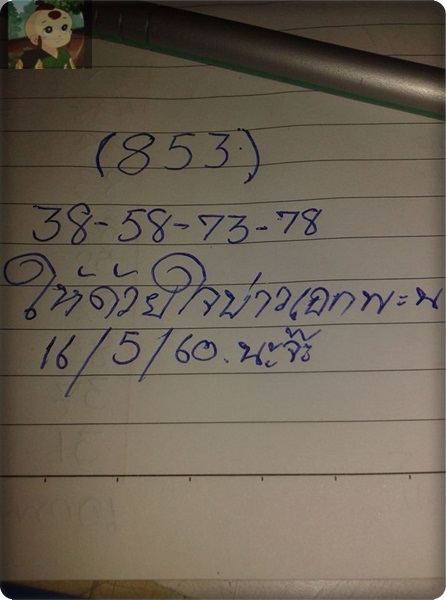 (853)
38-58-73-78
ให้ด้วยใจบ่าวเอกพะน
16/5/60. นะจ๊ะ